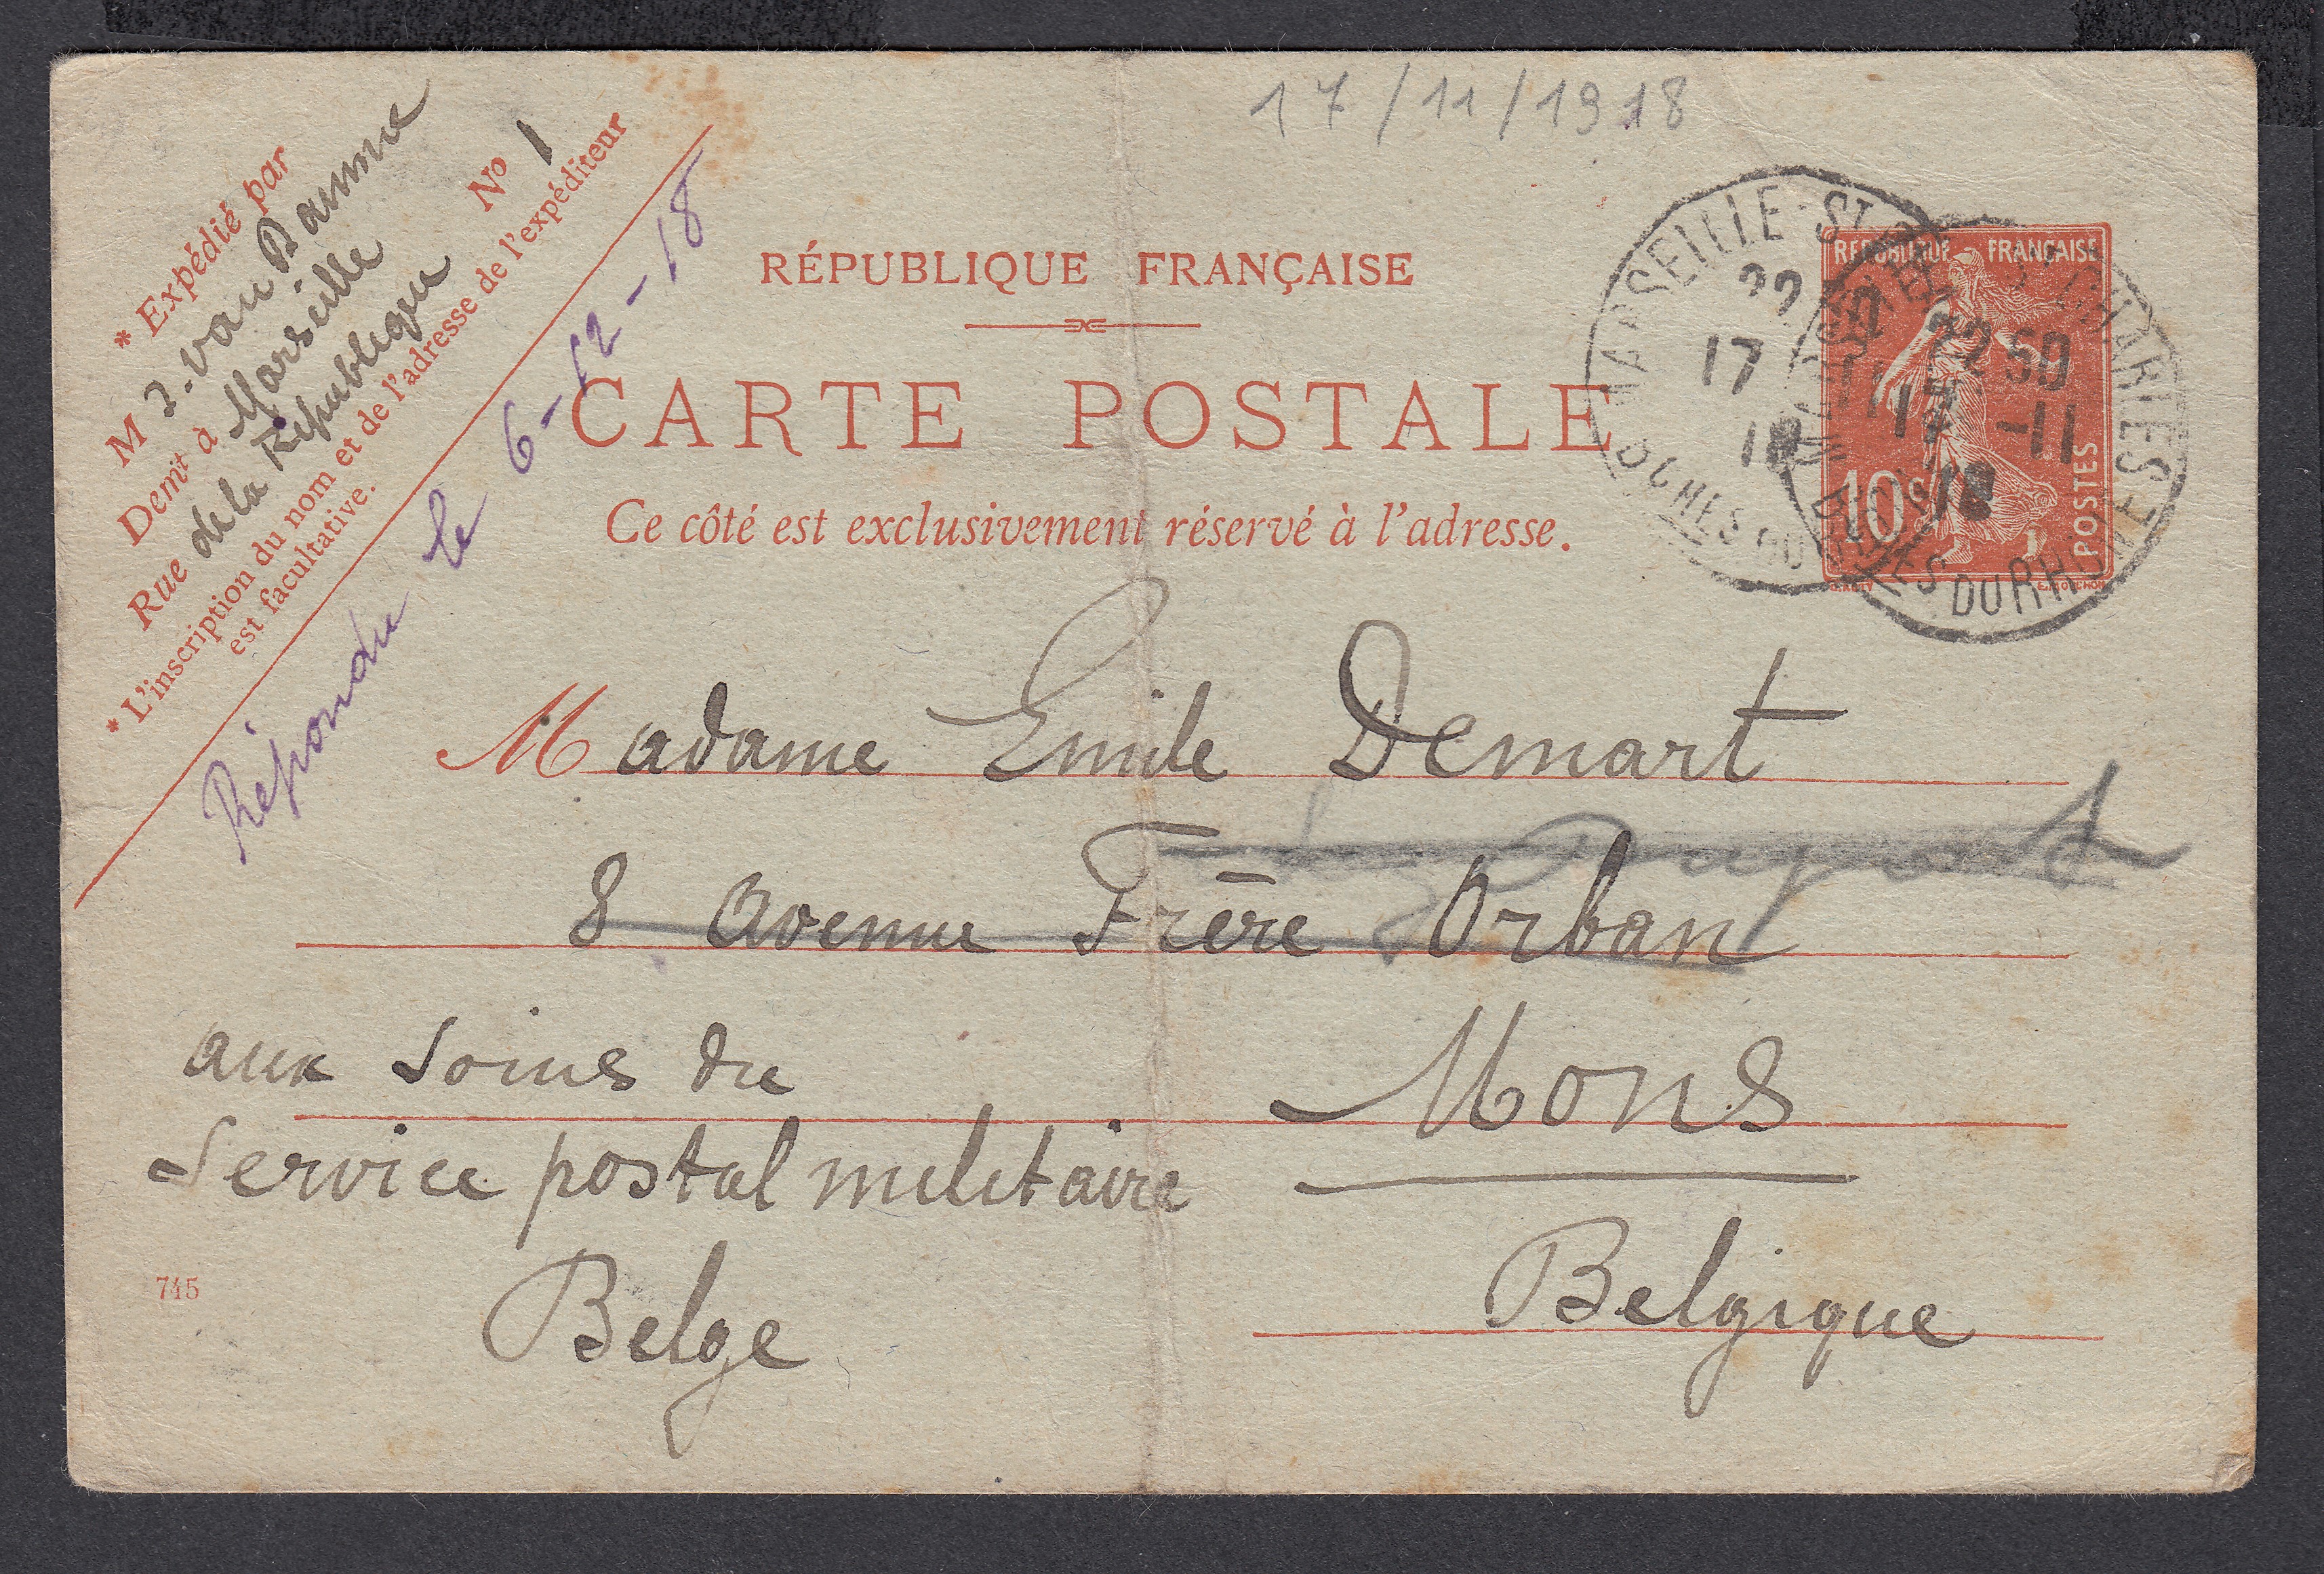 17/11/1918
* Expédié par
M J. Van Damme
Demt à Marseille
Rue de la République No 1
* L'inscription du nom et de l'adresse de l'expéditeur
est facultative.
Répondu le 6-12-18
RÉPUBLIQUE FRANÇAISE
CARTE POSTALE
Ce côté est exclusivement réservé à l'adresse.
MARSEILLE ST CHARLES
22
17
BCHES DU RHONE
MARSEILLE ST CHARLES
22 50
17 -11
18
BCHES DU RHONE
REPUBLIQUE FRANÇAISE
10c
POSTES
Madame Emile Demart
8 Avenue Frère Orban
aux soins du Mons
Service postal militaire
Belge Belgique
745